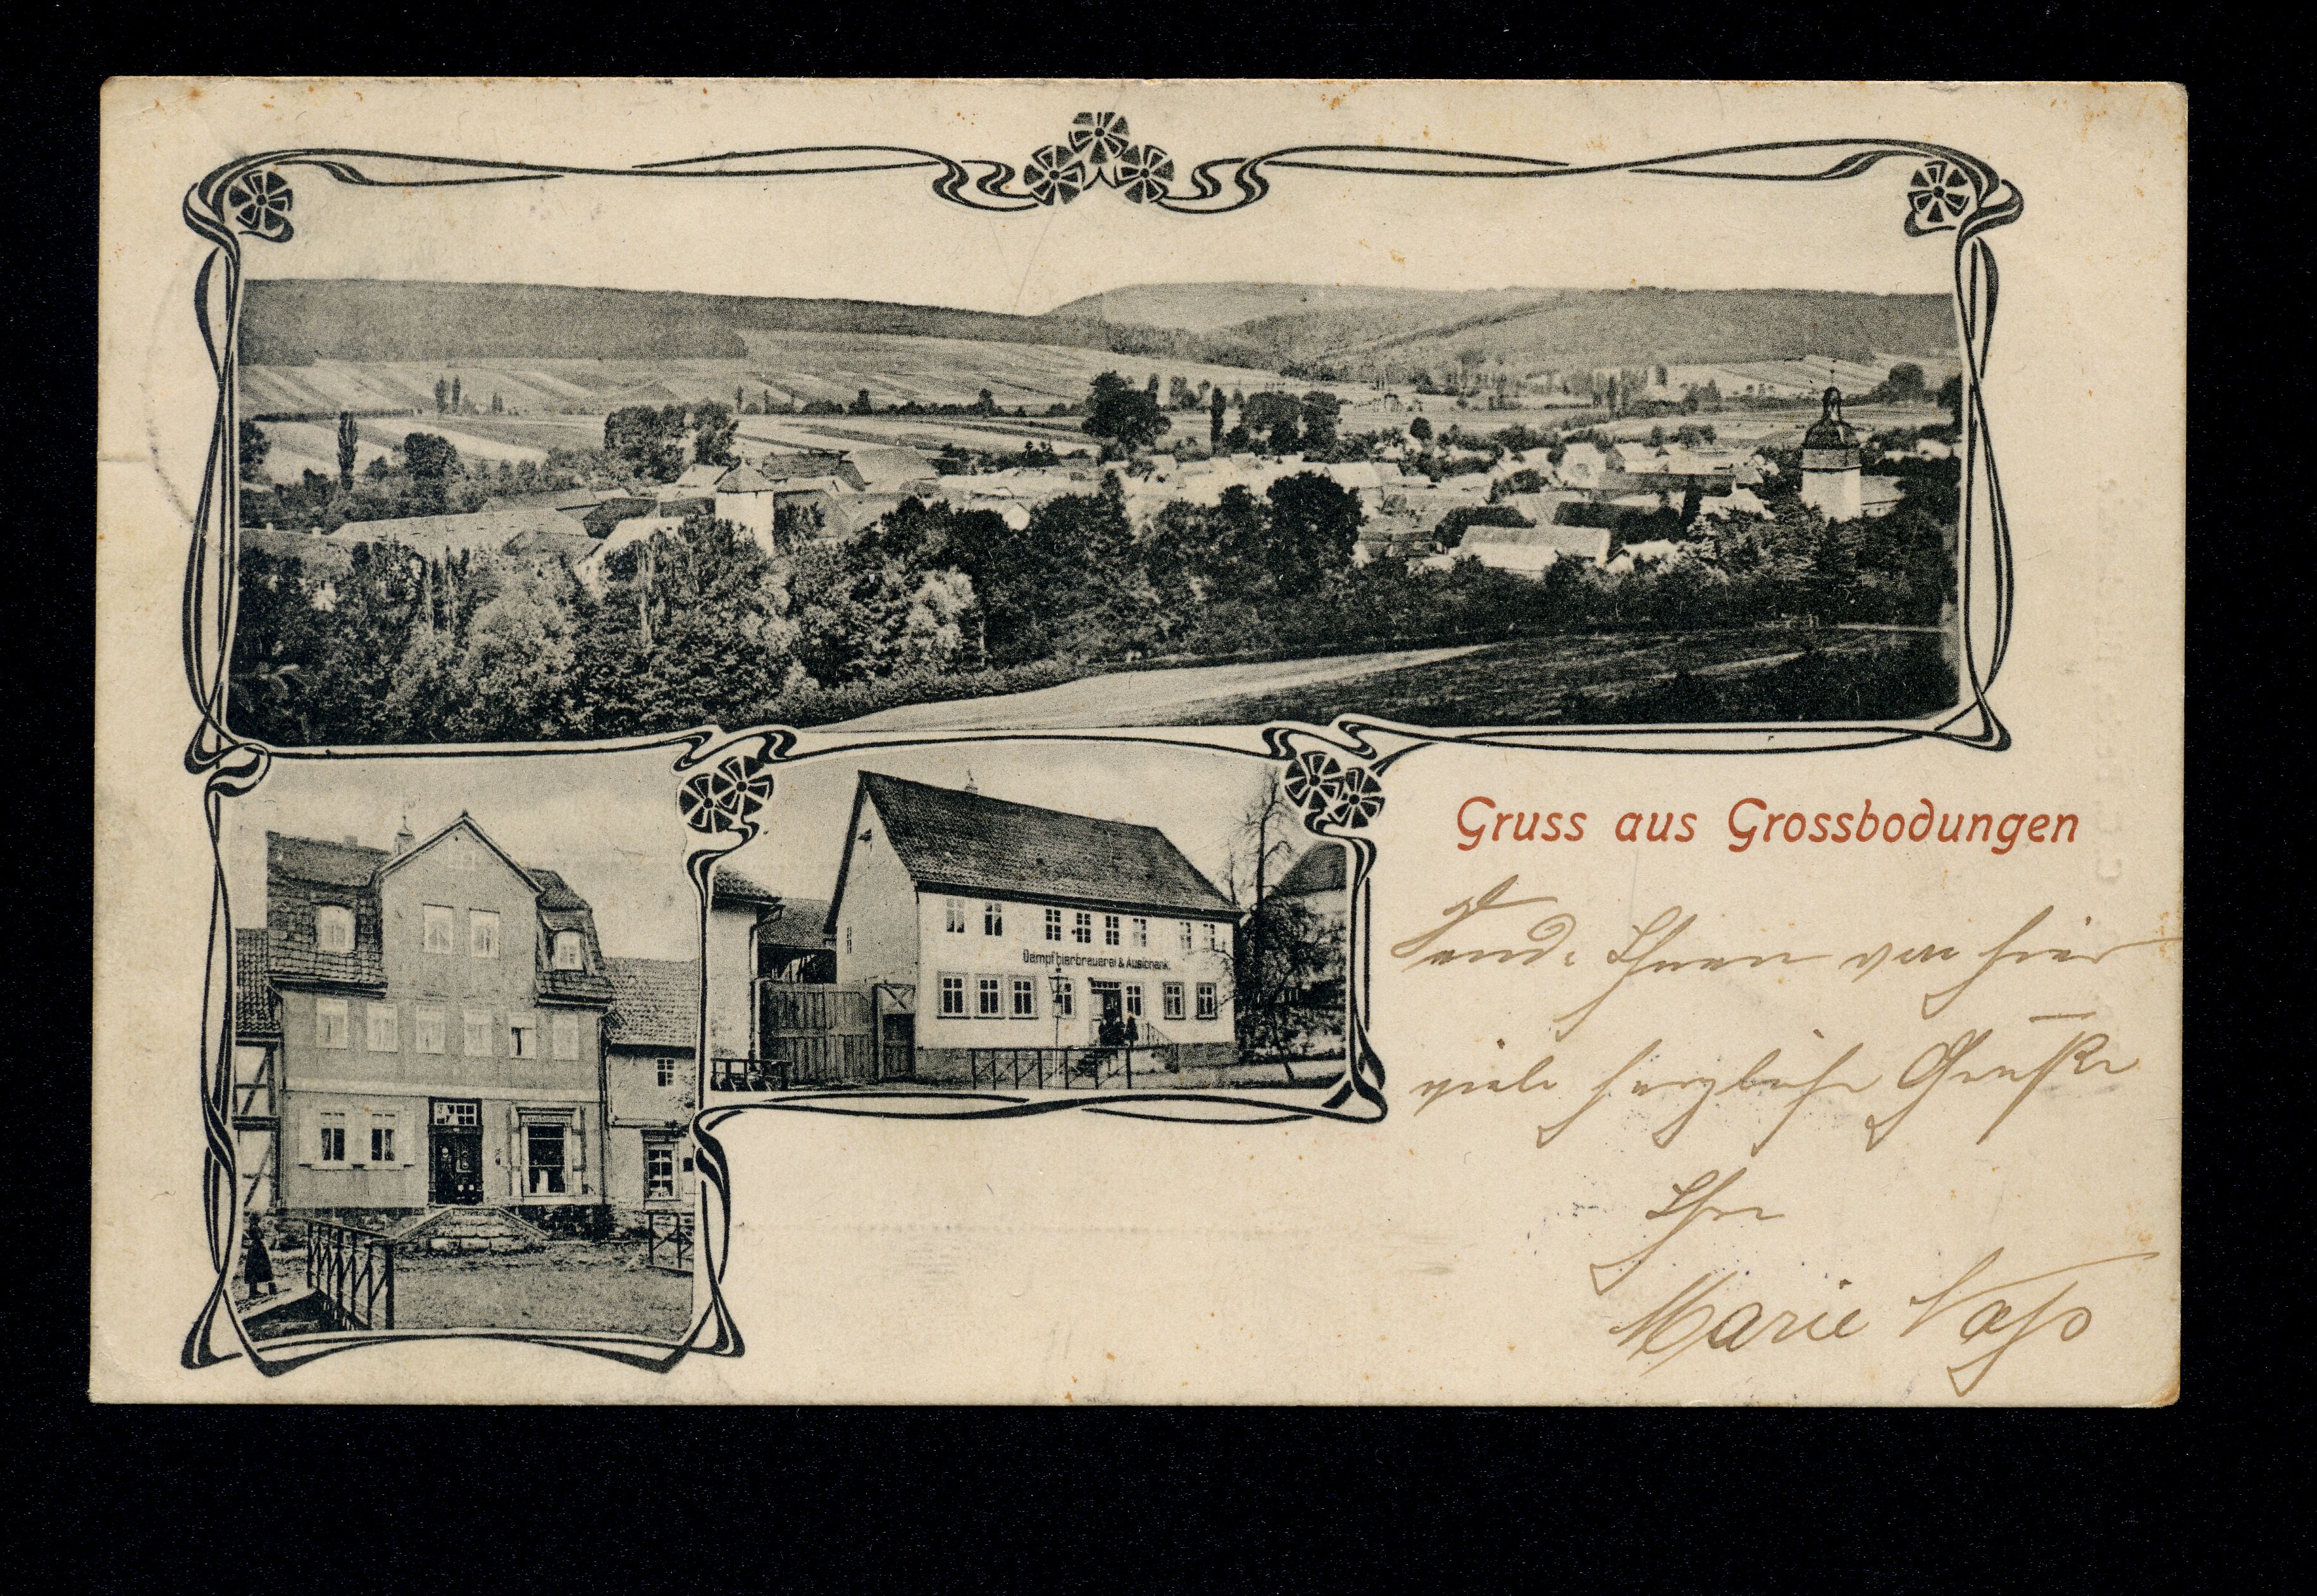 Dampfbierbrauerei & Ausschank.
Gruss aus Grossbodungen
Sende Ihnen von hier
viele herzliche Grüße
Ihre
Marie Voß